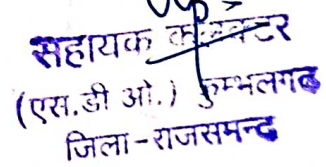 सहायक कलेक्टर
(एस.डी ओ.) कुम्भलगढ
जिला-राजसमन्द